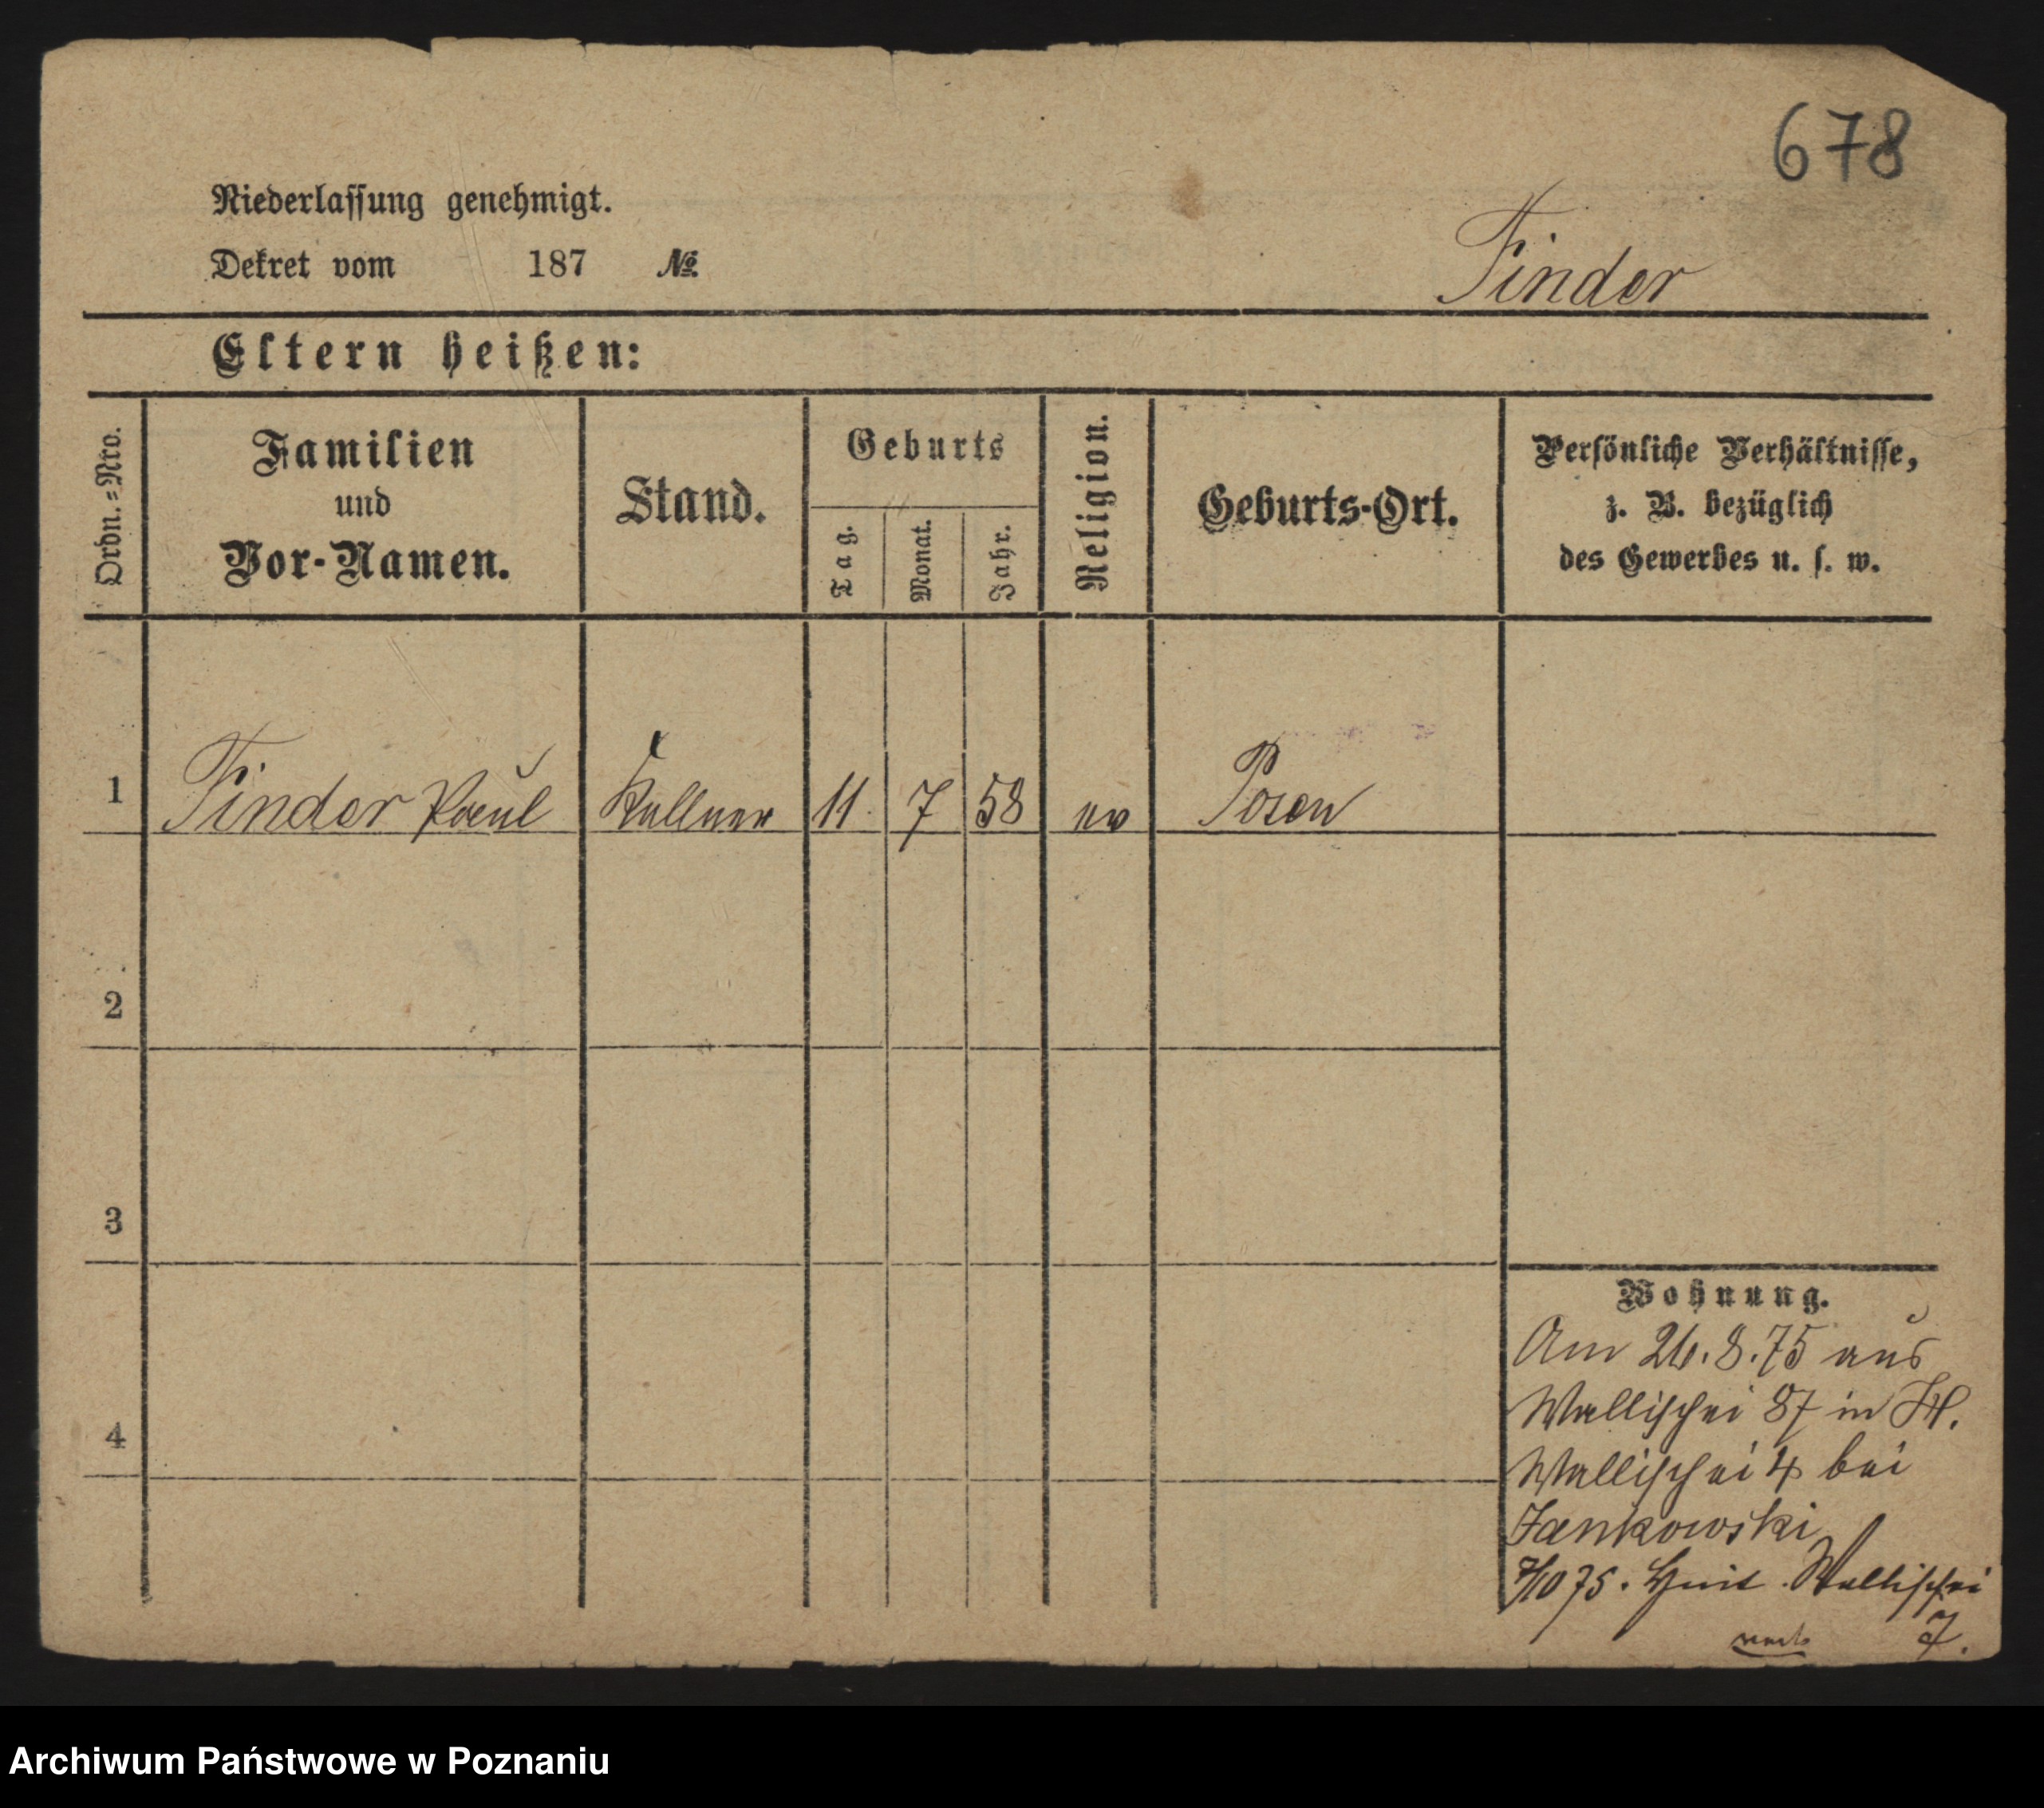 678
Niederlassung genehmigt.
Dekret vom 187 №
Finder
Eltern heißen:
Ordn.=Nro.
Familien
und
Vor-Namen.
Stand.
Geburts
Tag.
Monat.
Jahr.
Religion.
Geburts-Ort.
Persönliche Verhältnisse,
z. B. bezüglich
des Gewerbes u. s. w.
1 Finder Paul Kellner 11. 7 58 ev Posen
2
3
4
Wohnung.
Am 26.8.75 aus
Wallischei 87 in
Wallischei 4 bei
Jankowski
7/10 75. Wallischei
7.
Archiwum Państwowe w Poznaniu